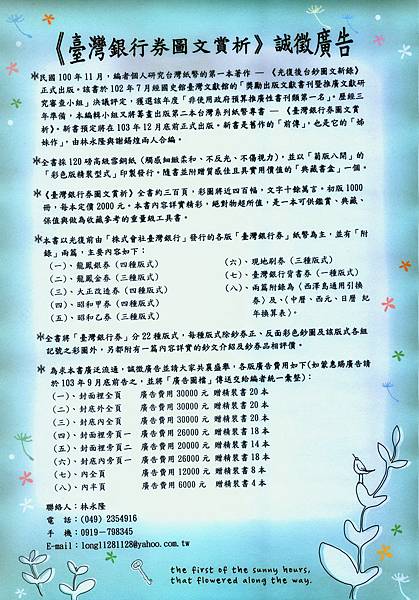 《臺灣銀行券圖文賞析》誠徵廣告
＊民國100年11月，編者個人研究台灣紙幣的第一本著作 —《光復後台鈔圖文新錄》
正式出版。該書於102年7月經國史館臺灣文獻館的「獎勵出版文獻書刊暨推廣文獻研
究審查小組」決議評定，獲選該年度「非使用政府預算推廣性書刊類第一名」。歷經三
年準備，本編輯小組又將籌畫出版第二本台灣系列紙幣專書 —《臺灣銀行券圖文賞
析》。新書預定將在103年12月底前正式出版。新書是舊作的「前傳」，也是它的「姊
妹作」，由林永隆與謝錫煌兩人合編。
＊全書採120磅高級雪銅紙（觸感細緻柔和、不反光、不傷視力），並以「菊版八開」的
「彩色版精裝型式」印製發行。隨書並附贈質感佳且具實用價值的「典藏書盒」一個。
＊《臺灣銀行券圖文賞析》全書約三百頁，彩圖將近四百幅，文字十餘萬言。初版1000
冊，每本定價2000元。本書內容詳實精彩，絕對物超所值，是一本可供鑑賞、典藏、
保值與做為收藏參考的重量級工具書。
＊本書以光復前由「株式會社臺灣銀行」發行的各版「臺灣銀行券」紙幣為主，並有「附
錄」兩篇，主要內容如下：
（一）、龍鳳銀券（四種版式）
（二）、龍鳳金券（三種版式）
（三）、大正改造券（四種版式）
（四）、昭和甲券（四種版式）
（五）、昭和乙券（三種版式）
（六）、現地刷券（三種版式）
（七）、臺灣銀行背書券（一種版式）
（八）、兩篇附錄為〈西澤島通用引換
券〉及〈中曆、西元、日曆 紀
年換算表〉。
＊全書將「臺灣銀行券」分22種版式，每種版式除鈔券正、反面彩色鈔圖及該版式各組
記號之彩圖外，另都附有一篇內容詳實的鈔文介紹及鈔券品相評價。
＊為求本書廣泛流通，誠徵廣告並請大家共襄盛舉，各版廣告費用如下(如蒙惠賜廣告請
於103年9月底前告之，並將「廣告圖檔」傳送交給編者統一彙整)：
（一）、封面裡全頁 廣告費用30000元 贈精裝書20本
（二）、封底外全頁 廣告費用30000元 贈精裝書20本
（三）、封底內全頁 廣告費用30000元 贈精裝書20本
（四）、封面裡秀頁一 廣告費用26000元 贈精裝書18本
（五）、封面裡秀頁二 廣告費用20000元 贈精裝書14本
（六）、封底內秀頁一 廣告費用26000元 贈精裝書18本
（七）、內全頁 廣告費用12000元 贈精裝書8本
（八）、內半頁 廣告費用6000元 贈精裝書4本
聯絡人：林永隆
電 話：(049) 2354916
手 機：0919-798345
E-mail：long11281128@yahoo.com.tw
the first of the sunny hours,
that flowered along the way.